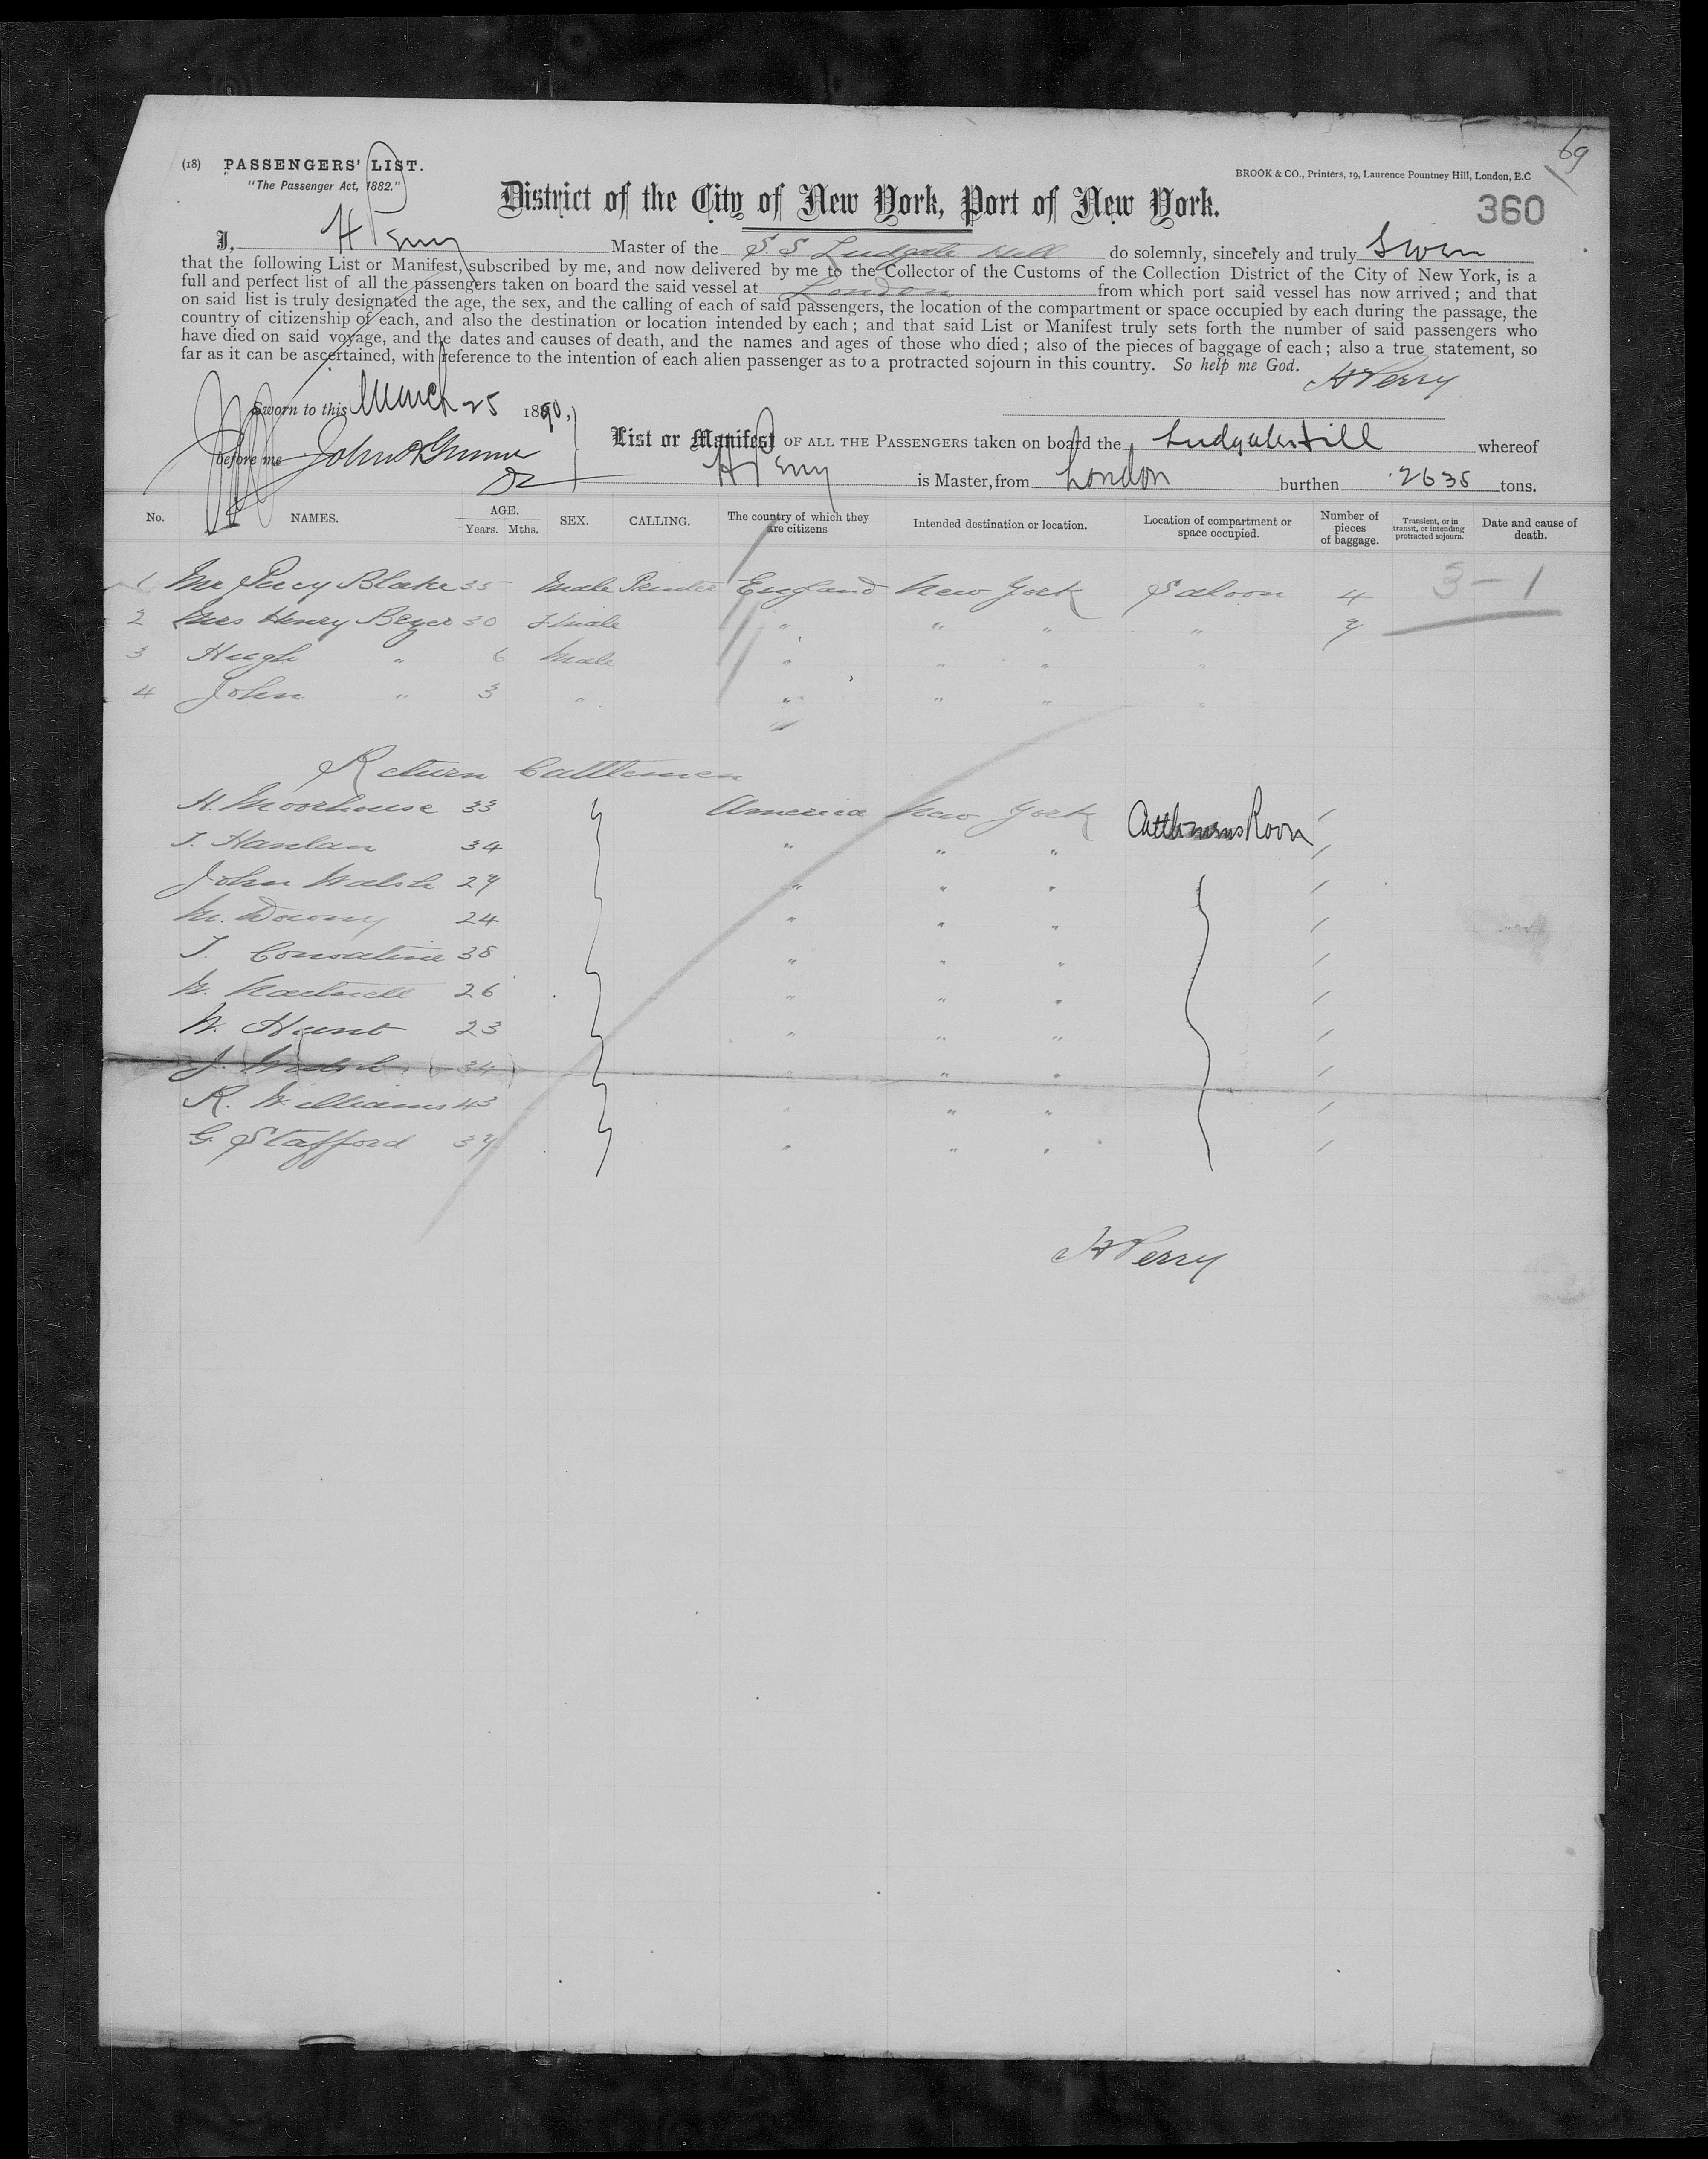 69
(18) PASSENGERS' LIST.
"The Passenger Act, 1882."
BROOK & CO., Printers, 19, Laurence Pountney Hill, London, E.C
District of the City of New York, Port of New York.
360
I, H Perry Master of the S.S Ludgate Hill do solemnly, sincerely and truly Swear
that the following List or Manifest, subscribed by me, and now delivered by me to the Collector of the Customs of the Collection District of the City of New York, is a
full and perfect list of all the passengers taken on board the said vessel at London from which port said vessel has now arrived; and that
on said list is truly designated the age, the sex, and the calling of each of said passengers, the location of the compartment or space occupied by each during the passage, the
country of citizenship of each, and also the destination or location intended by each; and that said List or Manifest truly sets forth the number of said passengers who
have died on said voyage, and the dates and causes of death, and the names and ages of those who died; also of the pieces of baggage of each; also a true statement, so
far as it can be ascertained, with reference to the intention of each alien passenger as to a protracted sojourn in this country. So help me God.
H Perry
Sworn to this March 25 1890,
before me John
List or Manifest OF ALL THE PASSENGERS taken on board the Ludgate Hill whereof
H Perry is Master, from London burthen 2635 tons.
No. NAMES. AGE. Years. Mths. SEX. CALLING. The country of which they are citizens Intended destination or location. Location of compartment or space occupied. Number of pieces of baggage. Transient, or in transit, or intending protracted sojourn. Date and cause of death.
1 Mr Percy Blake 35 Male England New York Saloon 4 3-1
2 Mrs Henry Beyer 30 Female " " " "
3 Hugh " 6 Male " " " "
4 John " 3 " " " " "
Return Cattlemen
H. Moorhouse 33 America New York Cattlemens Room /
T. Hanlan 34 " " " /
John Walsh 27 " " " /
M. 24 " " " /
T. 38 " " " /
26 " " " /
W. Hunt 23 " " " /
J. 34 " " " /
R. Williams 43 " " " /
G. Stafford 37 " " " /
H Perry